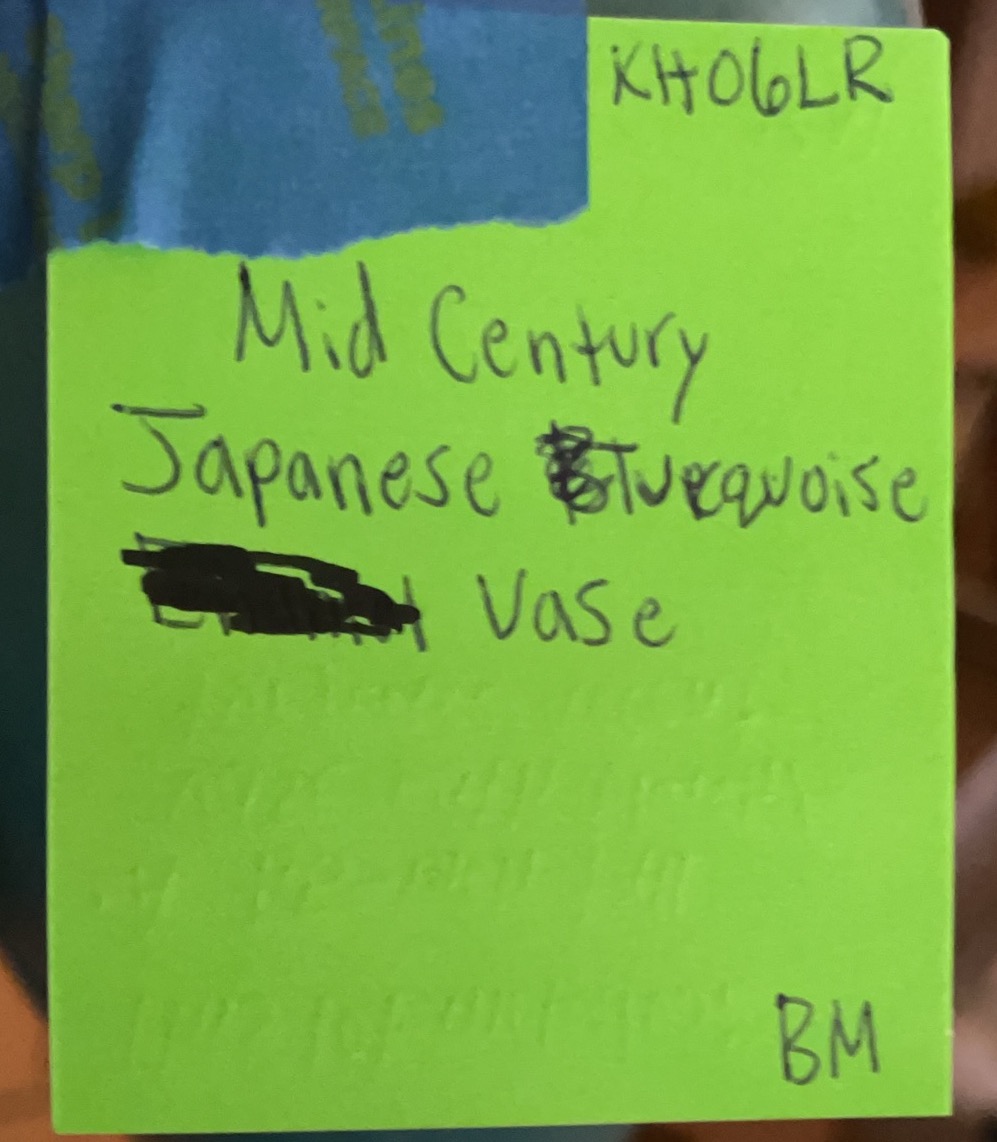 KH06LR
Mid Century
Japanese Turquoise
Vase
BM